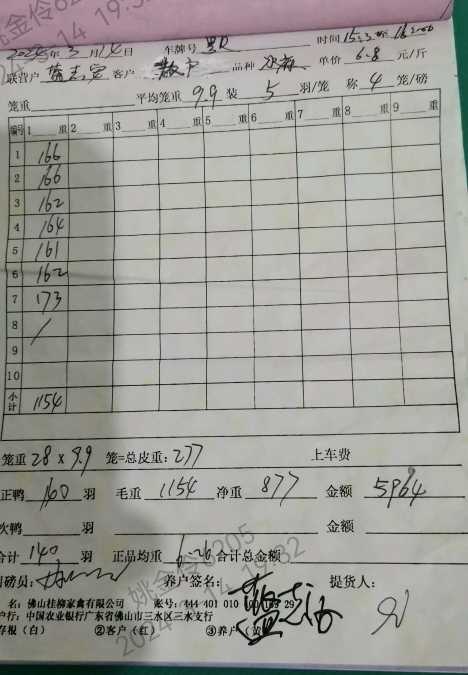 2025年3月14日 车牌号 时间15:30 16:00
联营户 蓝志定 客户 散户 品种 单价 6.8 元/斤
笼重 平均笼重 9.9 装 5 羽/笼 称 4 笼/磅
编号 1 重 2 重 3 重 4 重 5 重 6 重 7 重 8 重 9 重
1 166
2 166
3 162
4 164
5 161
6 162
7 173
8 /
9
10
小计 1154
笼重 28 x 9.9 笼=总皮重: 277 上车费
正鸭 160 羽 毛重 1154 净重 877 金额 5964
次鸭 羽 金额
合计 140 羽 正品均重 6.26 合计总金额
司磅员: 养户签名: 提货人:
名: 佛山桂柳家禽有限公司 账号: 444 401 010
户行: 中国农业银行广东省佛山市三水区三水支行
存根 (白) ②客户 (红) ③养户
姚金伶6205
14 19:32